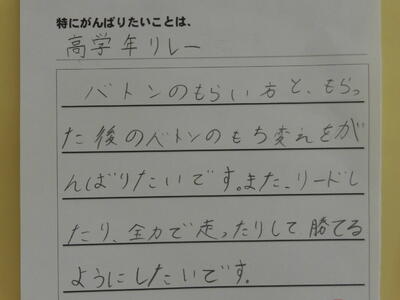 特にがんばりたいことは、
高学年リレー
バトンのもらい方と、もらっ
た後のバトンのもち変えをが
んばりたいです。また、リードし
たり、全力で走ったりして勝てる
ようにしたいです。